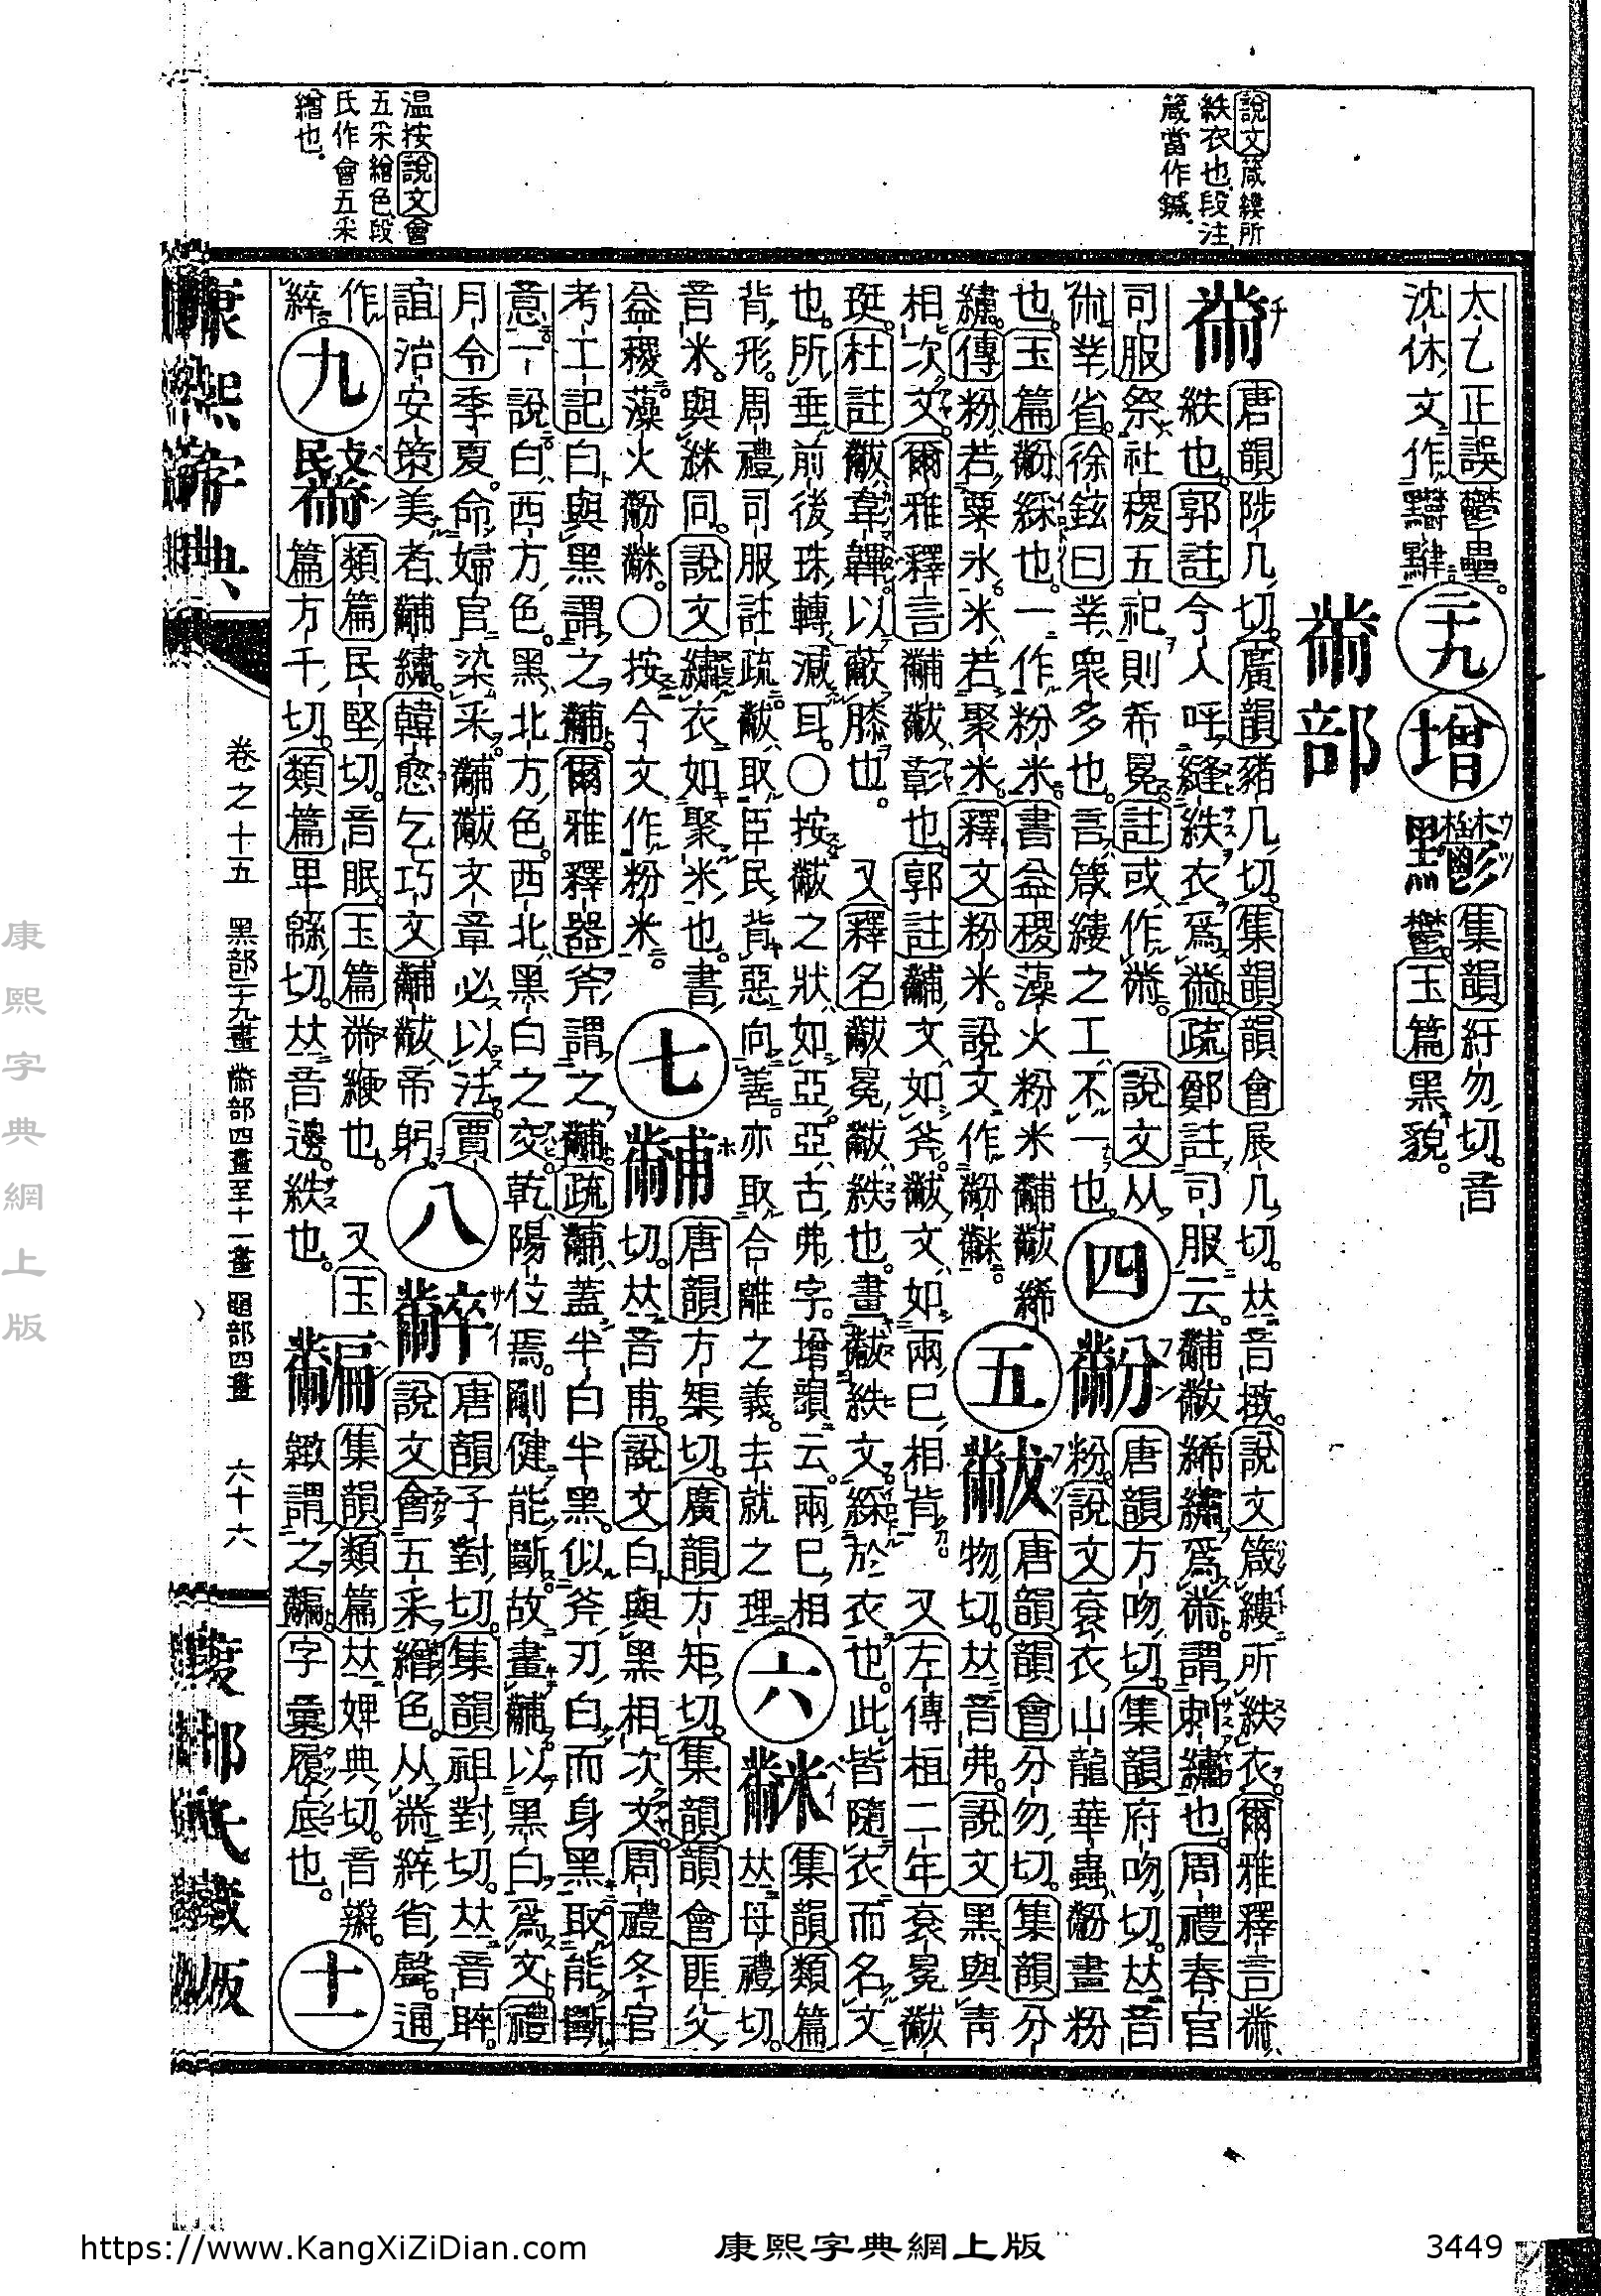 說文箴縷所
紩衣也段注
箴當作鍼
温按說文會
五采繒色段
氏作會五采
繒也
太乙正誤鬱壘。
沈休文作
二十九
增
集韻紆勿切。音
鬱。玉篇黑貌。
黹部
黹
唐韻陟几切。廣韻豬几切。集韻韻會展几切。𠀤音
說文箴縷所紩衣。爾雅釋言黹
紩也。郭註今人呼縫紩衣爲黹。疏鄭註司服云。黼黻絺繡爲黹。謂刺繡也。周禮春官
司服祭社稷五祀則希冕。註或作黹。 說文从
㡀丵省。徐鉉曰丵衆多也。言箴縷之工不一也。
四
黺
唐韻方吻切。集韻府吻切。𠀤音
粉。說文袞衣山龍華蟲黺畫粉
也。玉篇黺綵也。一作粉米。書益稷藻火粉米黼黻絺
繡。傳粉若粟冰。米若聚米。釋文粉米。說文作黺𪓋。
五
黻
唐韻韻會分勿切。集韻分
物切。𠀤音弗。說文黑與靑
相次文。爾雅釋言黼黻彰也。郭註黼文如斧。黻文如兩已相背 又左傳桓二年袞冕黻
珽。杜註黻韋韠以蔽膝也。 又釋名黻冕黻紩也。畫黻紩文綵於衣也。此皆隨衣而名文
也。所垂前後珠轉減耳。〇按黻之狀如亞。亞古弗字。增韻云。兩已相
背形。周禮司服註疏黻取臣民背惡向善。亦取合離之義。去就之理。
六
𪓋
集韻類篇
𠀤母禮切
音米。與絲同。說文繡衣如聚米也。書
益稷藻火黺𪓋。〇按今文作粉米。
七
黼
唐韻方榘切。廣韻方矩切。集韻韻會匪父
切。𠀤音甫。說文白與黑相次文。周禮冬官
考工記白與黑謂之黼。爾雅釋器斧謂之黼。疏黼蓋半白半黑。似斧刃白而身黑。取能斷
意。一說白西方色。黑北方色。西北黑白之交。乾陽位焉。剛健能斷。故畫黼以黑白爲文。禮
月令季夏。命婦官染采。黼黻文章必以法。賈
誼治安策美者黼繡。韓愈乞巧文黼黻帝躬。
八
唐韻子對切。集韻祖對切。𠀤音晬。
說文會五采繒色。从黹綷省聲。通
作
綷。
九
類篇民堅切。音眠。玉篇黹緶也。 又玉
篇方千切。類篇卑緜切。𠀤音邊。紩也。
集韻類篇𠀤婢典切。音辮。
緻謂之 字彙履底也。
十一
康熙字典
卷之十五
黑部二十九畫
黹部四畫至十一畫
黽部四畫
六十六
渡部氏藏版
康熙字典網上版
https://www.KangXiZiDian.com
康熙字典網上版
3449